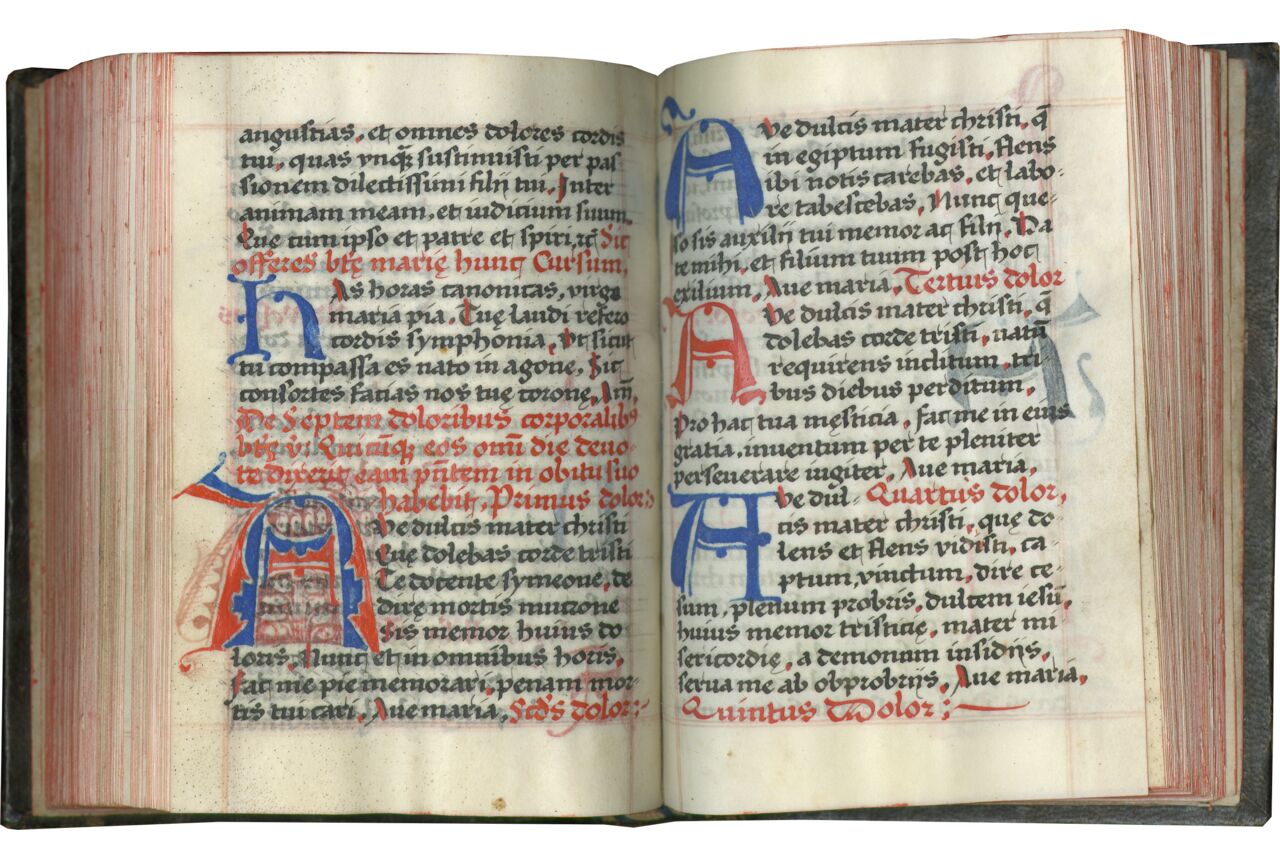 angustias, et omnes dolores cordis
tui, quas vnq̃ȝ sustinuisti per pas
sionem dilectissimi filij tui. Inter
animam meam, et iudicium suum,
Que cum ipso et patre et spiri, rc̃ Sic
offeres btę marię hunc Cursum,
HAs horas canonicas, virgo
maria pia. Tuę laudi refero
cordis symphonia, Vt sicut
tu compassa es nato in agone, Sic
consortes facias nos tuę coronę, Am̃
De Septem doloribus corporalibꝫ
btę v̇. Quicũq̃ȝ eos omĩ die deuo-
te dixerit eam pñtem in obitu suo
habebit, Primus dolor;
AVe dulcis mater christi
Quę dolebas corde tristi
Te docente symeone, de
dirę mortis mucrone
Sis memor huius do
loris, Nunc et in omnibus horis,
Fac me pie memorari, penam mor-
tis tui cari, Aue maria, Scd̃s dolor;
AVe dulcis mater christi, q̃
in egiptum fugisti, flens
ibi notis carebas, et labo-
re tabescebas, Nunc que-
so sis auxilij tui memor ac filij, Da
te mihi, et filium tuum post hoc
exilium, Aue maria, Tertius dolor
AVe dulcis mater christi, q̃
dolebas corde tristi, natũ
requirens inclitum, tri-
bus diebus perditum,
Pro hac tua męsticia, fac me in eius
gratia, inuentum per te pleniter
perseuerare iugiter, Aue maria,
AVe dul- Quartus dolor,
cis mater christi, quę do-
lens et flens vidisti, ca-
ptum, vinctum, dire ce-
sum, plenum probris, dulcem iesũ,
huius memor tristicię, mater mi
sericordię, a demonum insidijs,
serua me ab obprobrijs, Aue maria,
Quintus Dolor;